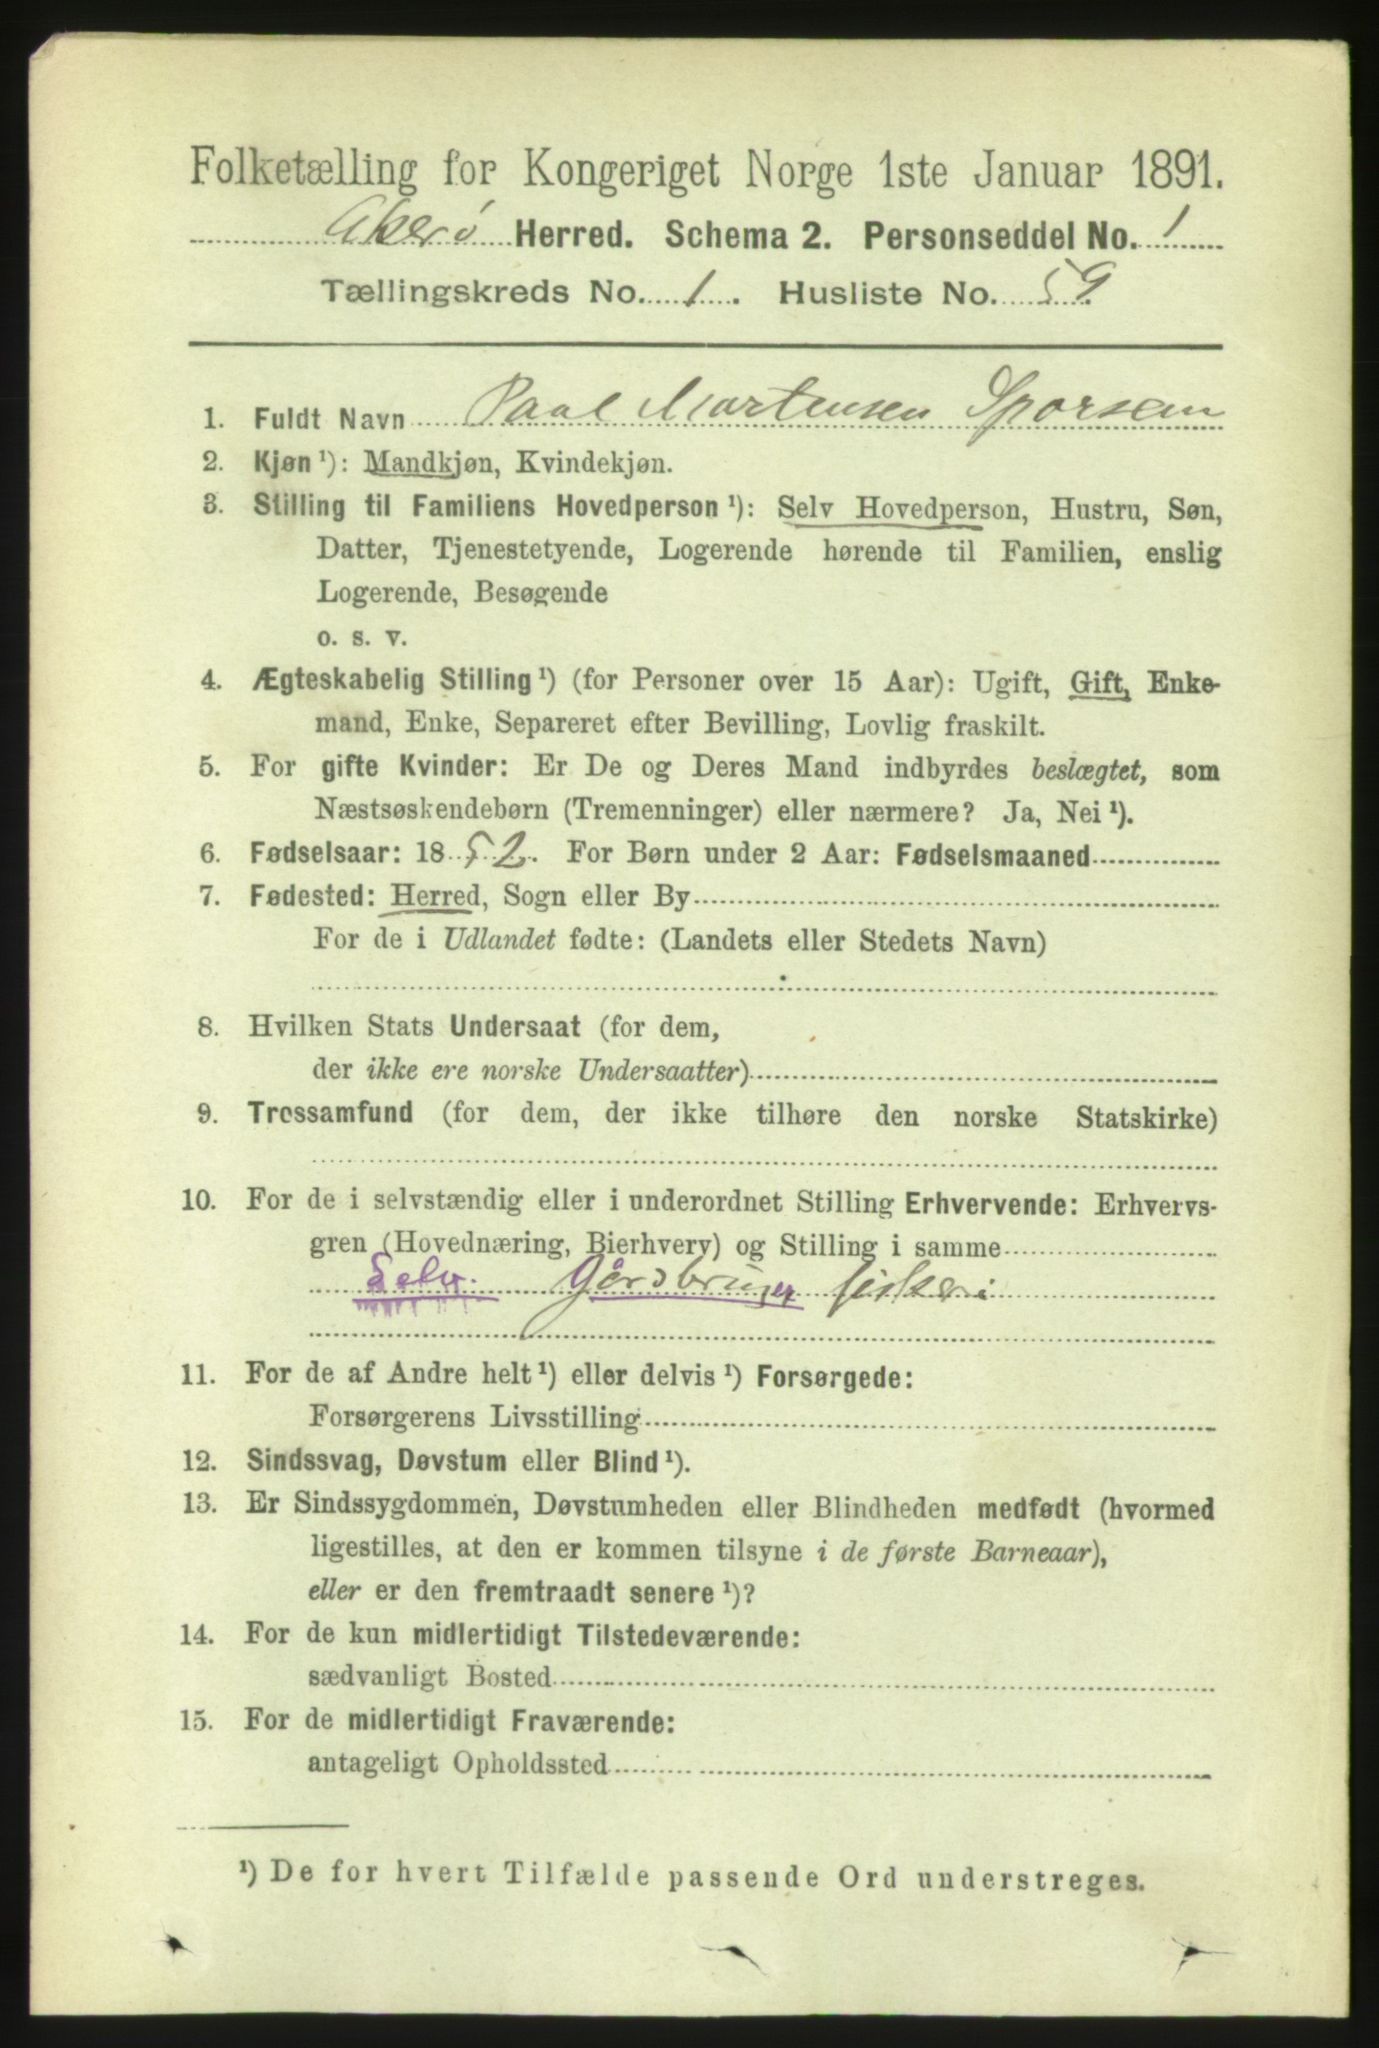 Folketælling for Kongeriget Norge 1ste Januar 1891.
Akerø Herred. Schema 2. Personseddel No. 1
Tællingskreds No. 1. Husliste No. 59
1. Fuldt Navn Paal Martensen Sporsem
2. Kjøn ¹): Mandkjøn, Kvindekjøn.
3. Stilling til Familiens Hovedperson ¹): Selv Hovedperson, Hustru, Søn,
Datter, Tjenestetyende, Logerende hørende til Familien, enslig
Logerende, Besøgende
o. s. v.
4. Ægteskabelig Stilling ¹) (for Personer over 15 Aar): Ugift, Gift, Enke-
mand, Enke, Separeret efter Bevilling, Lovlig fraskilt.
5. For gifte Kvinder: Er De og Deres Mand indbyrdes beslægtet, som
Næstsøskendebørn (Tremenninger) eller nærmere? Ja, Nei ¹).
6. Fødselsaar: 1852. For Børn under 2 Aar: Fødselsmaaned
7. Fødested: Herred, Sogn eller By
For de i Udlandet fødte: (Landets eller Stedets Navn)
8. Hvilken Stats Undersaat (for dem,
der ikke ere norske Undersaatter)
9. Trossamfund (for dem, der ikke tilhøre den norske Statskirke)
10. For de i selvstændig eller i underordnet Stilling Erhvervende: Erhvervs-
gren (Hovednæring, Bierhverv) og Stilling i samme
Selv. Gårdbruger fiskeri
11. For de af Andre helt ¹) eller delvis ¹) Forsørgede:
Forsørgerens Livsstilling
12. Sindssvag, Døvstum eller Blind ¹).
13. Er Sindssygdommen, Døvstumheden eller Blindheden medfødt (hvormed
ligestilles, at den er kommen tilsyne i de første Barneaar),
eller er den fremtraadt senere ¹)?
14. For de kun midlertidigt Tilstedeværende:
sædvanligt Bosted
15. For de midlertidigt Fraværende:
antageligt Opholdssted
¹) De for hvert Tilfælde passende Ord understreges.